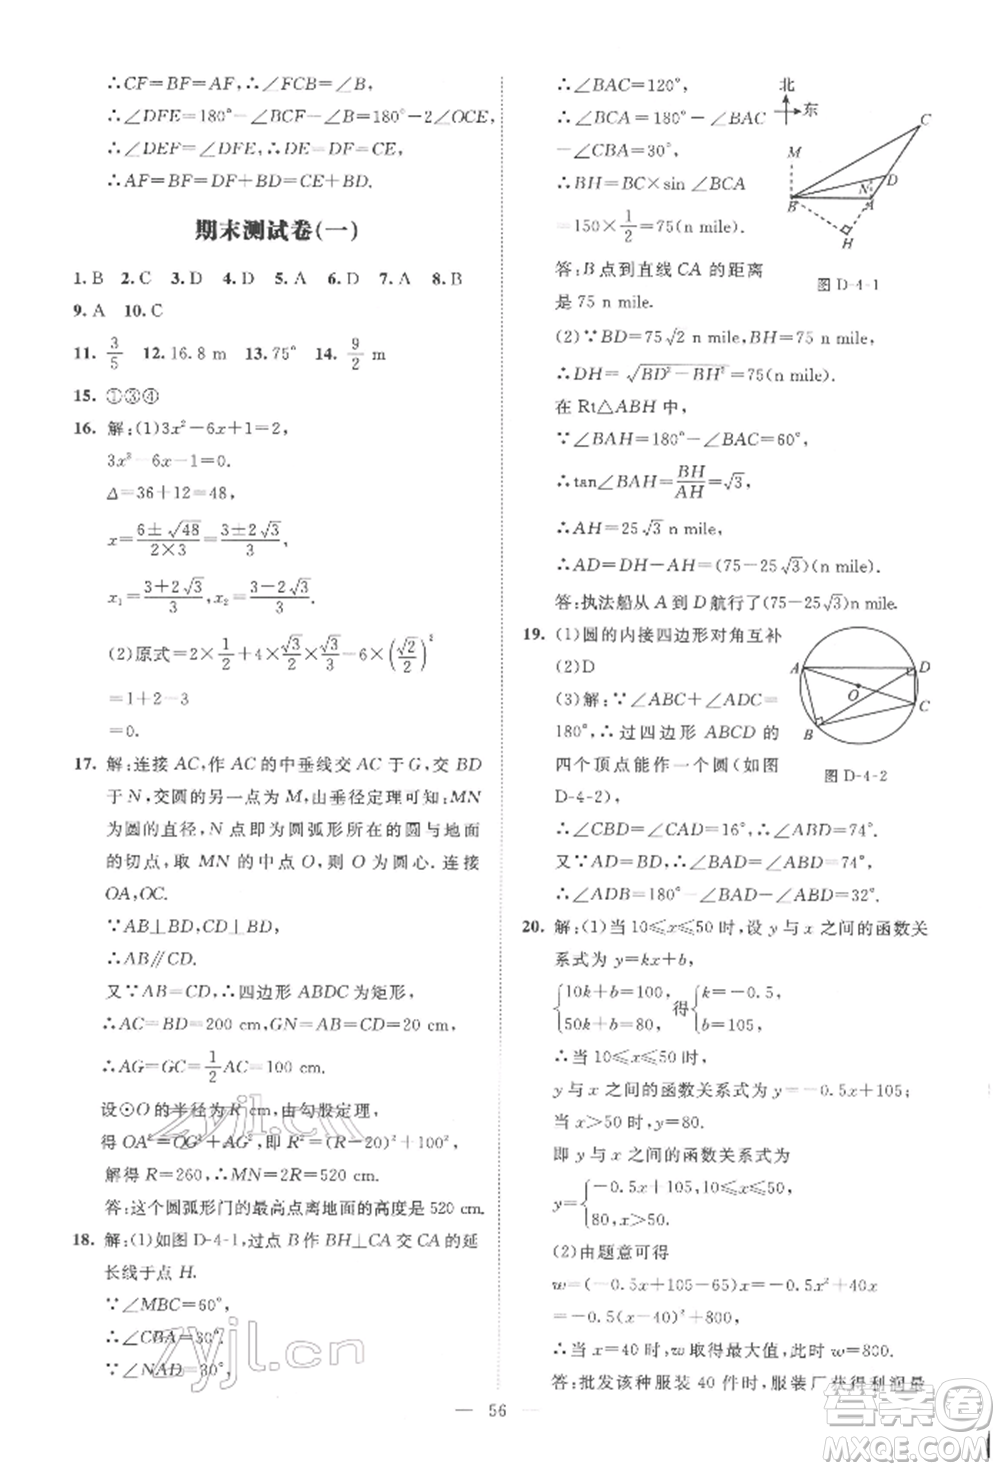 ∴CF=BF=AF,∴∠FCB=∠B,
∴∠DFE=180°−∠BCF−∠B=180°−2∠OCE,
∴∠DEF=∠DFE,∴DE=DF=CE,
∴AF=BF=DF+BD=CE+BD.
期末测试卷(一)
1. B 2. C 3. D 4. D 5. A 6. D 7. A 8. B
9. A 10. C
11. 3/5 12. 16.8 m 13. 75° 14. 9/2 m
15. ①③④
16. 解:(1)3x²−6x+1=2,
3x²−6x−1=0.
Δ=36+12=48,
x=(6±√48)/(2×3)=(3±2√3)/3,
x₁=(3+2√3)/3,x₂=(3−2√3)/3.
(2)原式=2×1/2+4×√3/3×√3/2−6×(√2/2)²
=1+2−3
=0.
17. 解:连接 AC,作 AC 的中垂线交 AC 于 G,交 BD
于 N,交圆的另一点为 M,由垂径定理可知:MN
为圆的直径,N 点即为圆弧形所在的圆与地面
的切点,取 MN 的中点 O,则 O 为圆心.连接
OA,OC.
∵AB⊥BD,CD⊥BD,
∴AB∥CD.
又∵AB=CD,∴四边形 ABDC 为矩形,
∴AC=BD=200 cm,GN=AB=CD=20 cm,
∴AG=GC=1/2 AC=100 cm.
设⊙O 的半径为 R cm,由勾股定理,
得 OA²=OG²+AG²,即 R²=(R−20)²+100²,
解得 R=260,∴MN=2R=520 cm.
答:这个圆弧形门的最高点离地面的高度是 520 cm.
18. 解:(1)如图 D-4-1,过点 B 作 BH⊥CA 交 CA 的延
长线于点 H.
∵∠MBC=60°,
∴∠CBA=30°.
∵∠NAD=30°,
∴∠BAC=120°,
∴∠BCA=180°−∠BAC−
∠CBA=30°,
∴BH=BC×sin ∠BCA
=150×1/2=75(n mile).
答:B 点到直线 CA 的距离
是 75 n mile.
北
东
M
C
D
N
B
A
H
图 D-4-1
(2)∵BD=75√2 n mile,BH=75 n mile,
∴DH=√(BD²−BH²)=75(n mile).
在 Rt△ABH 中,
∵∠BAH=180°−∠BAC=60°,
∴tan∠BAH=BH/AH=√3,
∴AH=25√3 n mile,
∴AD=DH−AH=(75−25√3)(n mile).
答:执法船从 A 到 D 航行了(75−25√3)n mile.
19. (1)圆的内接四边形对角互补
(2)D
(3)解:∵∠ABC+∠ADC=
180°,∴过四边形 ABCD 的
四个顶点能作一个圆(如图
D-4-2),
A
D
O
C
B
图 D-4-2
∴∠CBD=∠CAD=16°,∴∠ABD=74°.
又∵∠BAD=∠BAC+∠CAD=74°,
∴∠ADB=180°−∠BAD−∠ABD=32°.
20. 解:(1)当 10⩽x⩽50 时,设 y 与 x 之间的函数关
系式为 y=kx+b,
{10k+b=100, 得{k=−0.5,
50k+b=80, b=105,
∴当 10⩽x⩽50 时,
y 与 x 之间的函数关系式为 y=−0.5x+105;
当 x>50 时,y=80.
即 y 与 x 之间的函数关系式为
y={−0.5x+105,10⩽x⩽50,
80,x>50.
(2)由题意可得
w=(−0.5x+105−65)x=−0.5x²+40x
=−0.5(x−40)²+800,
∴当 x=40 时,w 取得最大值,此时 w=800.
答:批发该种服装 40 件时,服装厂获得利润最
56
zyjl.cn
zyjl.cn
答案圈
MXQE.COM